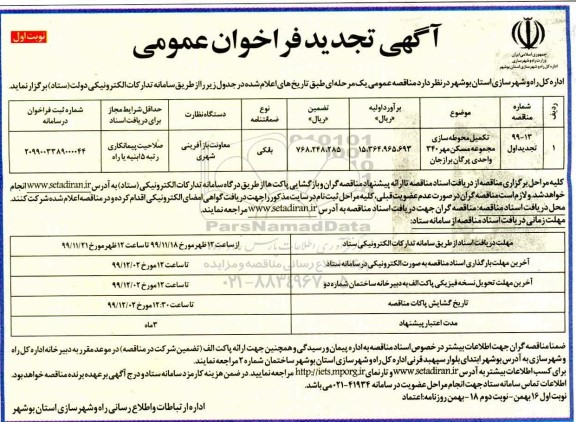 آگهی تجدید فراخوان عمومی
نوبت اول
جمهوری اسلامی ایران
وزارت راه و شهرسازی
اداره کل راه و شهرسازی استان بوشهر
اداره کل راه و شهرسازی استان بوشهر در نظر دارد مناقصه عمومی یک مرحله ای طبق تاریخ های اعلام شده در جدول زیر را از طریق سامانه تدارکات الکترونیکی دولت (ستاد) برگزار نماید.
ردیف | شماره مناقصه | موضوع | برآورد اولیه «ریال» | تضمین «ریال» | نوع ضمانتنامه | دستگاه نظارت | حداقل شرایط مجاز برای دریافت اسناد | شماره ثبت فراخوان در سامانه
۱ | ۹۹-۱۳ تجدید اول | تکمیل محوطه سازی مجموعه مسکن مهر ۳۴۰ واحدی پرگان برازجان | ۱۵.۳۶۴.۹۶۵.۶۹۳ | ۷۶۸.۲۴۸.۲۸۵ | بانکی | معاونت بازآفرینی شهری | صلاحیت پیمانکاری رتبه ۵ ابنیه یا راه | ۲۰۹۹۰۰۳۳۸۹۰۰۰۰۴۴
کلیه مراحل برگزاری مناقصه از دریافت اسناد مناقصه تا ارائه پیشنهاد مناقصه گران و بازگشایی پاکت ها از طریق درگاه سامانه تدارکات الکترونیکی (ستاد) به آدرس www.setadiran.ir انجام
خواهد شد و لازم است مناقصه گران در صورت عدم عضویت قبلی، کلیه مراحل ثبت نام در سایت مذکور را جهت دریافت گواهی امضای الکترونیکی اقدام کرده و در مناقصه اعلام شده شرکت کنند.
محل دریافت اسناد: مناقصه گران جهت دریافت اسناد مناقصه به آدرس www.setadiran.ir مراجعه نمایند.
مهلت زمانی دریافت اسناد مناقصه از سامانه ستاد:
مهلت دریافت اسناد از طریق سامانه تدارکات الکترونیکی ستاد | از ساعت ۱۲ ظهر مورخ ۹۹/۱۱/۱۸ تا ساعت ۱۲ ظهر مورخ ۹۹/۱۱/۲۱
آخرین مهلت بارگذاری اسناد مناقصه به صورت الکترونیکی در سامانه ستاد | تا ساعت ۱۲ مورخ ۹۹/۱۲/۰۲
آخرین مهلت تحویل نسخه فیزیکی پاکت الف به دبیرخانه ساختمان شماره دو | تا ساعت ۱۲ مورخ ۹۹/۱۲/۰۲
تاریخ گشایش پاکات مناقصه | تا ساعت ۱۲:۳۰ مورخ ۹۹/۱۲/۰۲
مدت اعتبار پیشنهاد | ۳ماه
ضمنا مناقصه گران جهت اطلاعات بیشتر در خصوص اسناد مناقصه به اداره پیمان و رسیدگی و همچنین جهت ارائه پاکت الف (تضمین شرکت در مناقصه) در موعد مقرر به دبیرخانه اداره کل راه
و شهرسازی به آدرس بوشهر ابتدای بلوار سپهبد قرنی اداره کل راه و شهرسازی استان بوشهر ساختمان شماره ۲ مراجعه نمایند.
برای کسب اطلاعات بیشتر به آدرس www.setadiran.ir و تارنمای http://iets.mporg.ir مراجعه نمایید. در ضمن هزینه کارمزد سامانه ستاد و درج آگهی بر عهده برنده مناقصه خواهد بود.
اطلاعات تماس سامانه ستاد جهت انجام مراحل عضویت در سامانه ۴۱۹۳۴-۰۲۱ می باشد.
نوبت اول ۱۶ بهمن - نوبت دوم ۱۸ - بهمن روزنامه: اعتماد
اداره ارتباطات و اطلاع رسانی راه و شهرسازی استان بوشهر
ParsNamadData
۰۲۱-۸۸۳۴۹۶۷۰